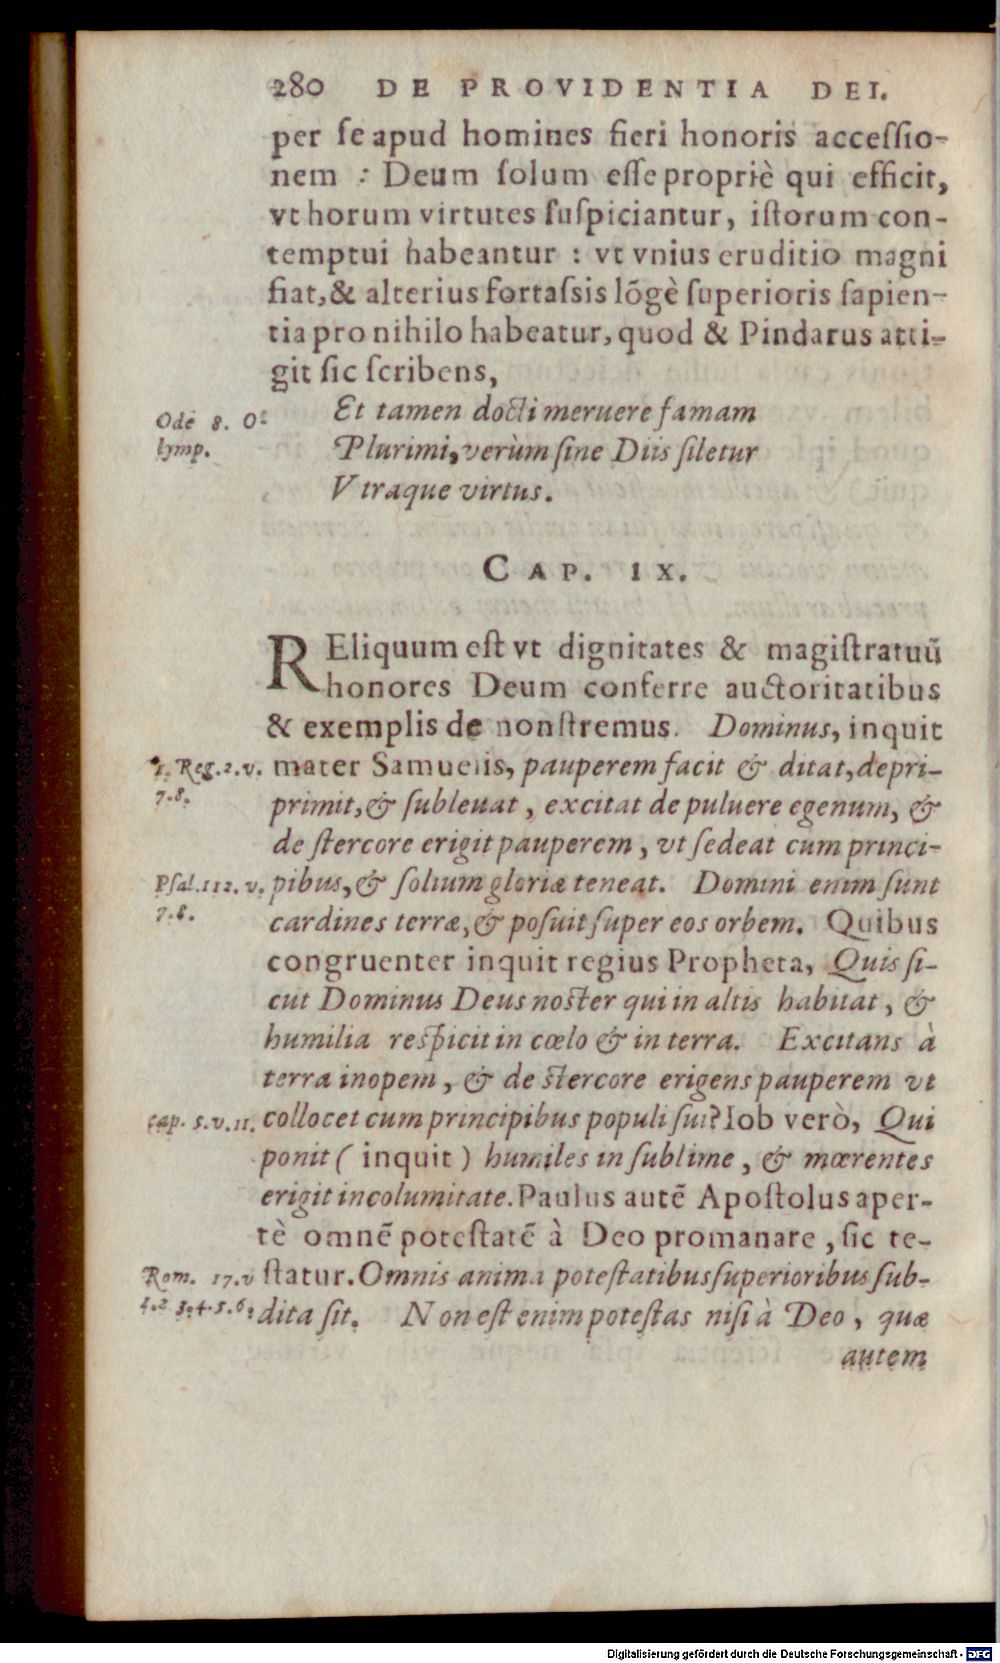 280 DE PROVIDENTIA DEI.
per ſe apud homines fieri honoris acceſſio-
nem : Deum ſolum eſſe propriè qui efficit,
vt horum virtutes ſuſpiciantur, iſtorum con-
temptui habeantur : vt vnius eruditio magni
fiat, & alterius fortaſsis lõgè ſuperioris ſapien-
tia pro nihilo habeatur, quod & Pindarus atti-
git ſic ſcribens,
Et tamen docti meruere famam
Ode 8. O-
lymp.
Plurimi, verùm ſine Diis ſiletur
Vtraque virtus.
CAP. IX.
REliquum eſt vt dignitates & magiſtratuũ
honores Deum conferre auctoritatibus
& exemplis de nonſtremus. Dominus, inquit
1. Reg. 2. v.
7.8.
mater Samuelis, pauperem facit & ditat, depri-
primit, & ſubleuat, excitat de puluere egenum, &
de ſtercore erigit pauperem, vt ſedeat cum princi-
Pſal. 112. v.
7.8.
pibus, & ſolium gloriæ teneat. Domini enim ſunt
cardines terræ, & poſuit ſuper eos orbem. Quibus
congruenter inquit regius Propheta, Quis ſi-
cut Dominus Deus noſter qui in altis habitat, &
humilia reſpicit in cœlo & in terra. Excitans à
terra inopem, & de ſtercore erigens pauperem vt
cap. 5. v. 11.
collocet cum principibus populi ſui? Iob verò, Qui
ponit ( inquit ) humiles in ſublime, & mœrentes
erigit incolumitate. Paulus autẽ Apoſtolus aper-
tè omnẽ poteſtatẽ à Deo promanare, ſic te-
Rom. 17. v
1.2 3.4.5.6.
ſtatur. Omnis anima poteſtatibus ſuperioribus ſub-
dita ſit. Non eſt enim poteſtas niſi à Deo, quæ
autem
Digitalisierung gefördert durch die Deutsche Forschungsgemeinschaft - DFG